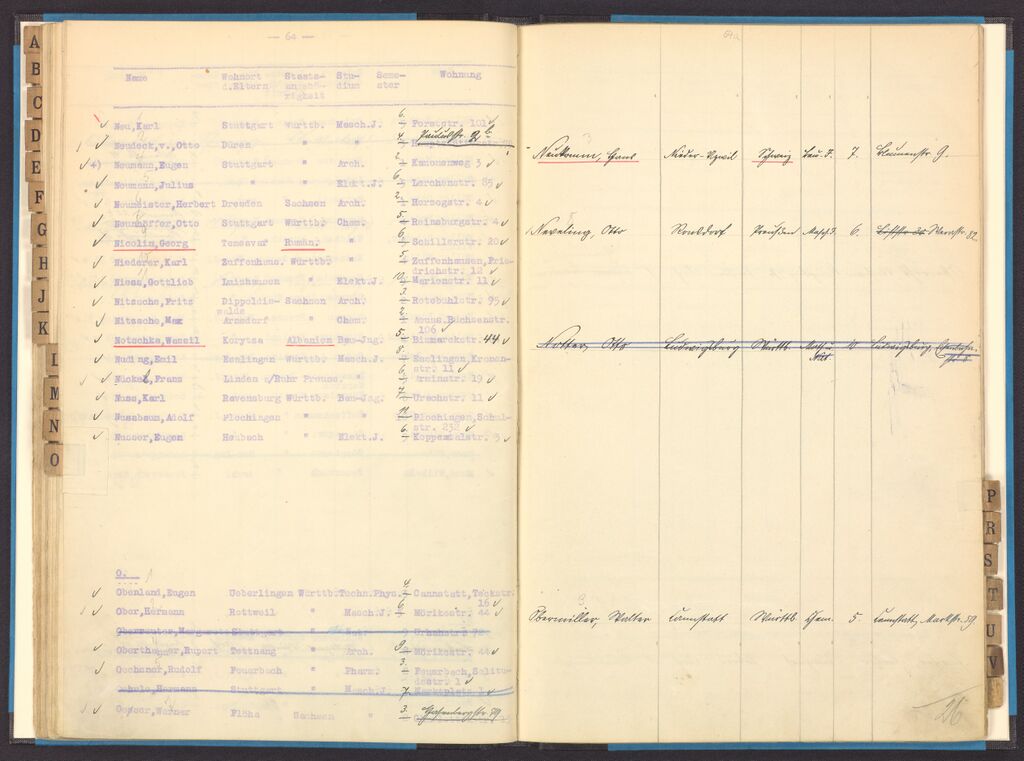 — 64 —
Name Wohnort d.Eltern Staats- angehö- rigkeit Stu- dium Seme- ster Wohnung
Neu,Karl Stuttgart Württb. Masch.J. 6. Forststr. 101
Neudeck,v.,Otto Düren " " 4.
4) Neumann,Eugen Stuttgart " Arch. Kanonenweg 3
Neumann,Julius " " Elekt.J. 6. Lerchenstr. 85
Neumeister,Herbert Dresden Sachsen Arch. 2. Herzogstr. 4
Neunhöffer,Otto Stuttgart Württb. Chem. 5. Reinsburgstr. 4
Nicolin,Georg Temesvar Rumän. " Schillerstr. 20
Niederer,Karl Zuffenhsn. Württb. " Zuffenhausen,Frie-
drichstr. 12
Niess,Gottlieb Laishausen " Elekt.J. 10. Marienstr. 11
Nitzsche,Fritz Dippoldis- Sachsen Arch. 3. Rotebühlstr. 95
walde
Nitzsche,Max Arnsdorf " Chem. 2. Augs.Büchsenstr.
106
Notschka,Wassil Korytza Albanien Bau-Jng. 5. Bismarckstr. 44
Nuding,Emil Esslingen Württb. Masch.J. 8. Esslingen,Kronen-
str. 11
Nückel,Franz Linden a/Ruhr Preuss. " 6. Arminstr. 19
Nuss,Karl Ravensburg Württb. Bau-Jng. 7. Urachstr. 11
Nussbaum,Adolf Plochingen " " Plochingen,Schul-
str. 232
Nusser,Eugen Heubach " Elekt.J. 6. Koppentalstr. 3
O.
Obenland,Eugen Ueberlingen Württb. Techn.Phys. 4. Cannstatt,Teckstr.
16
Ober,Hermann Rottweil " Masch.J. 6. Mörikestr. 44
Oberreuter,Margarete Stuttgart "
Oberthanner,Rupert Tettnang " Arch. 9. Mörikestr. 44
Oechsner,Rudolf Feuerbach " Pharm. 3. Feuerbach,Solitu-
destr. 1
Stuttgart " Masch.J. 7. Marktplatz 1
Oesser,Werner Flöha Sachsen " 3. Hasenbergstr. 79
64a
Neukomm, Hans Nieder-Uzwil Schweiz Bau-J. 7. Blumenstr. 9.
Neveling, Otto Ronsdorf Preußen Masch.J. 6.
Notter, Otto Ludwigsburg Württb. Ludwigsburg
Obermiller, Walter Cannstatt Württb. Chem. 5 Cannstatt, Markstr. 59.
26
A
B
C
D
E
F
G
H
J
K
L
M
N
O
P
R
S
T
U
V